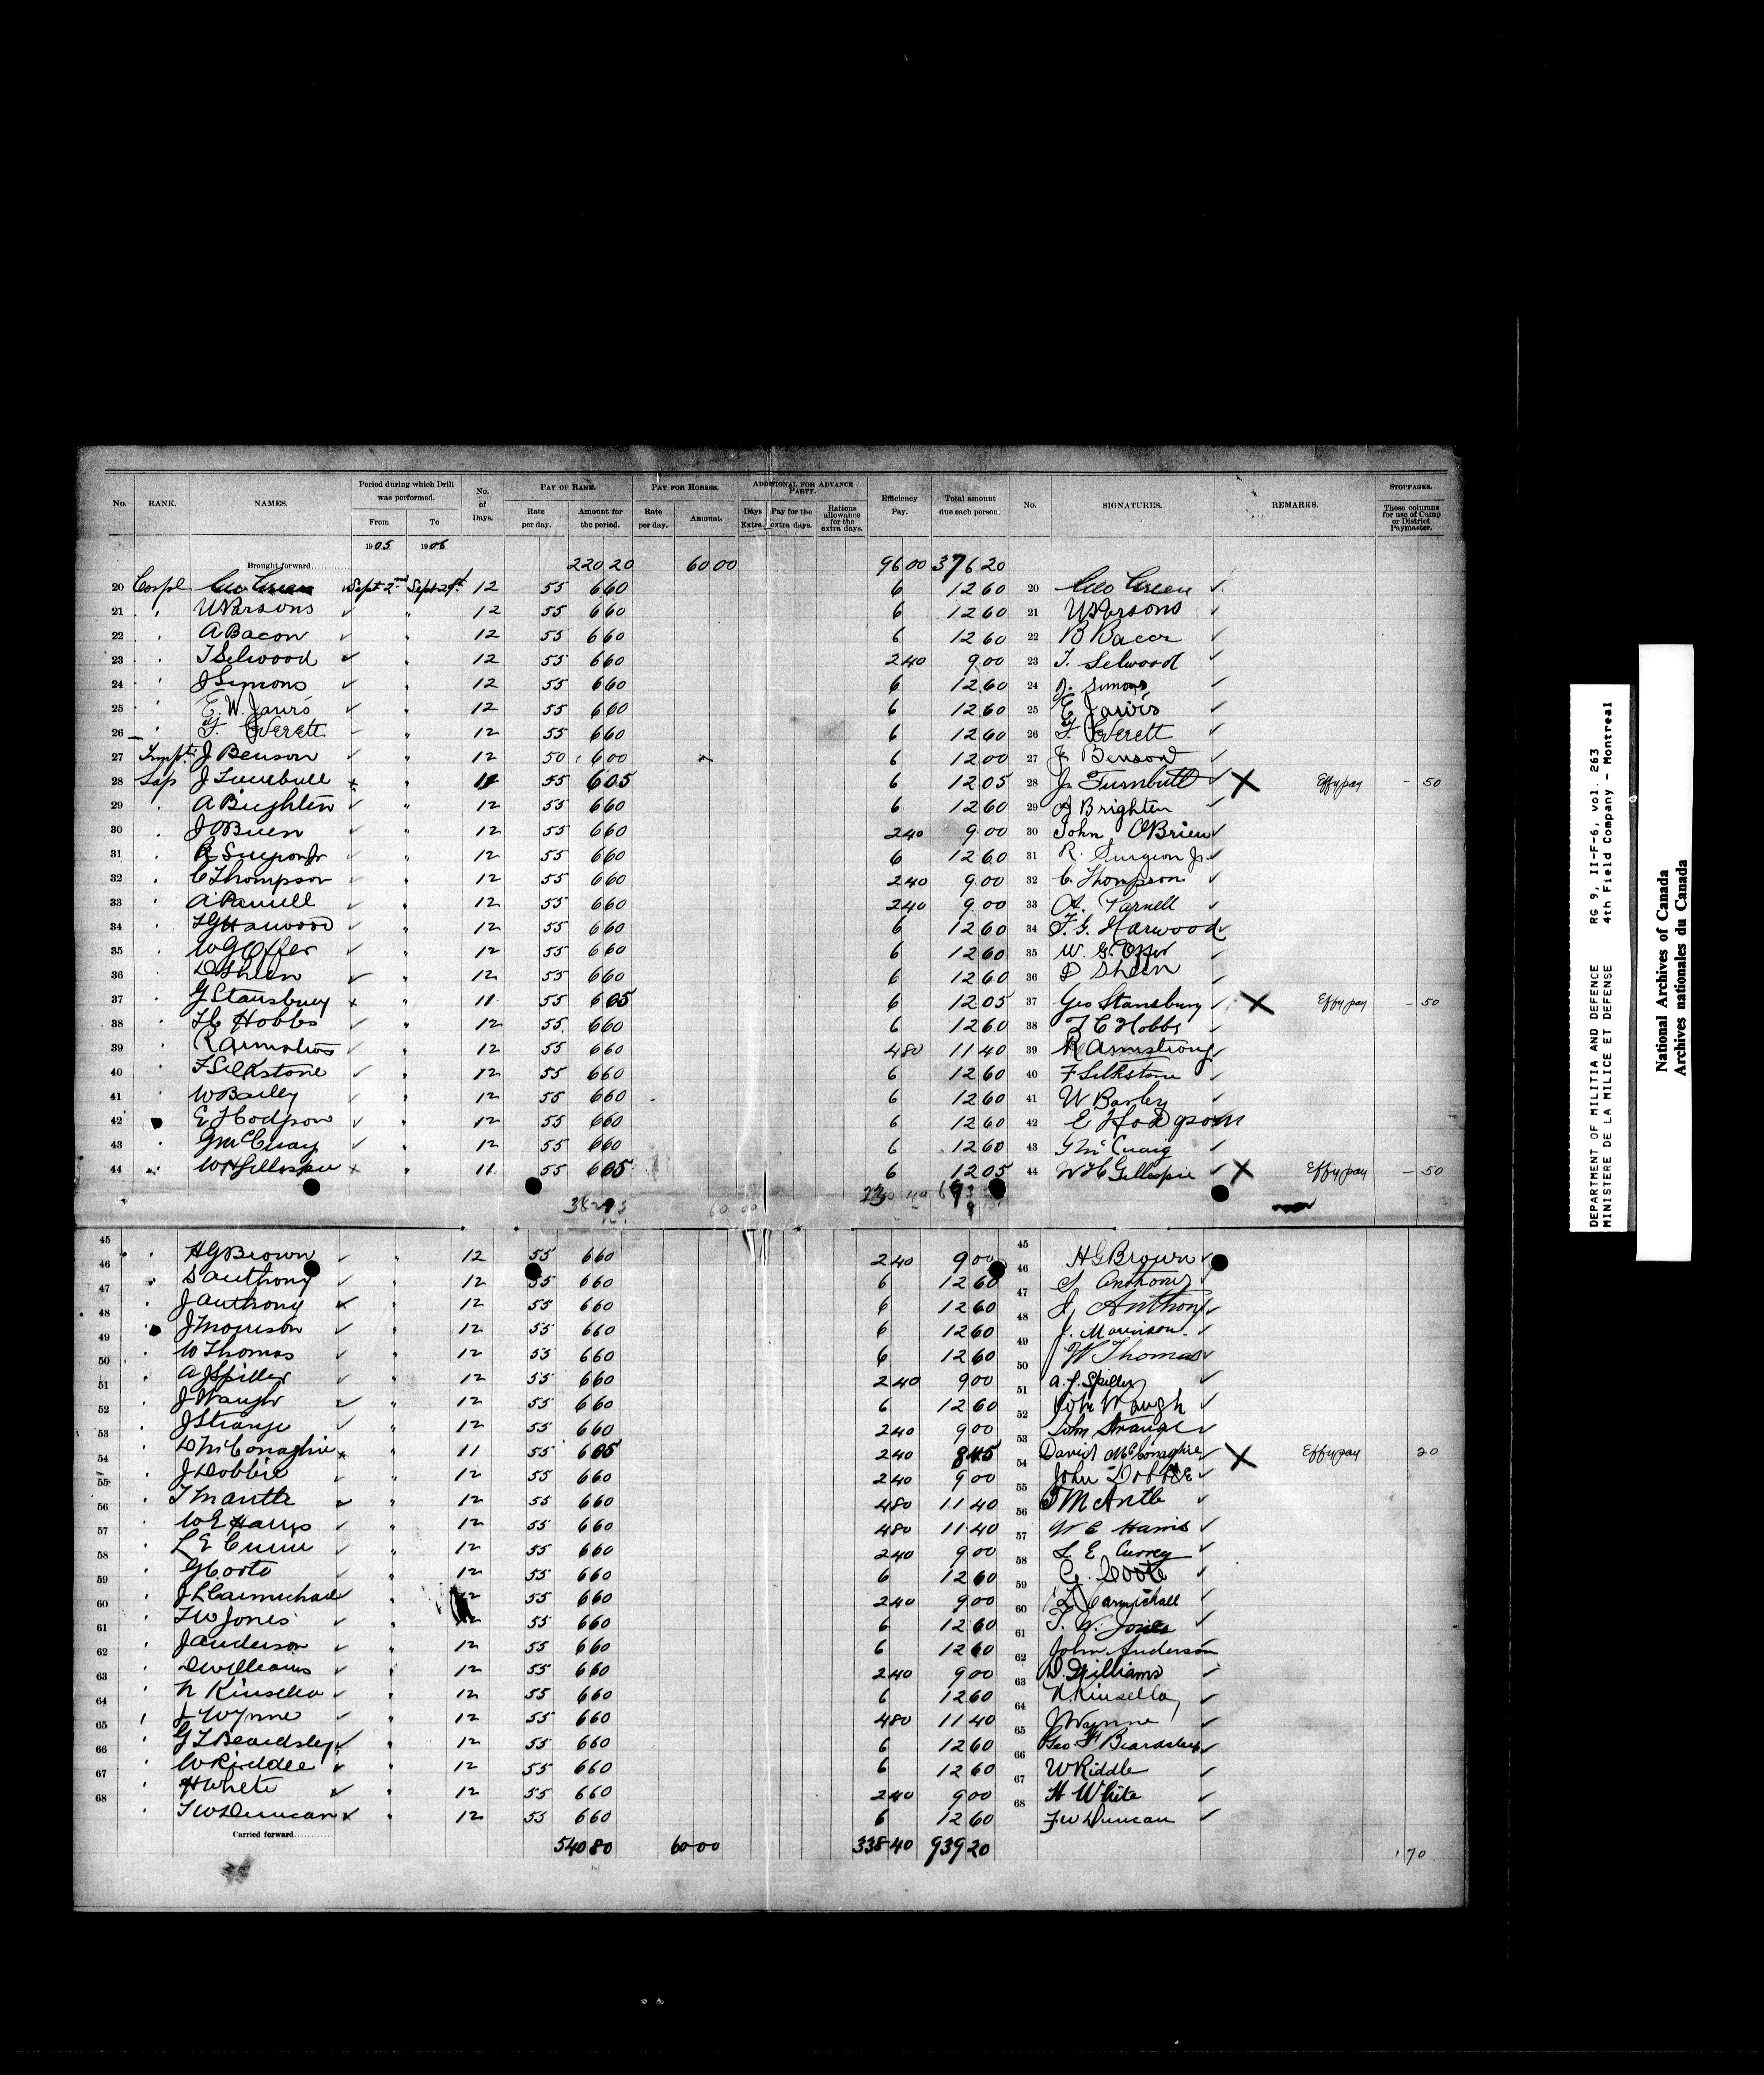 No. RANK. NAMES. Period during which Drill was performed. No. of Days. PAY OF RANK. PAY FOR HORSES. ADDITIONAL FOR ADVANCE PARTY. Efficiency Pay. Total amount due each person. No. SIGNATURES. REMARKS. STOPPAGES.
From To Rate per day. Amount for the period. Rate per day. Amount. Days Extra. Pay for the extra days. Rations allowance for the extra days. These columns for use of Camp or District Paymaster.
1905 1906
Brought forward 220 20 60 00 96 00 376 20
20 Corpl Geo Green Sept 2nd Sept 12 55 6 60 6 12 60 20 Geo Green
21 " W Parsons " 12 55 6 60 6 12 60 21 W Parsons
22 " A Bacon " 12 55 6 60 6 12 60 22 B Bacon
23 " T Selwood " 12 55 6 60 2 40 9 00 23 T. Selwood
24 " J Simons " 12 55 6 60 6 12 60 24 J. Simons
25 " E. W. Jarvis " 12 55 6 60 6 12 60 25 E Jarvis
26 " F. Everett " 12 55 6 60 6 12 60 26 F Everett
27 Trmptr J Benson " 12 50 6 00 6 12 00 27 J Benson
28 Sap J Turnbull x " 11 55 6 05 6 12 05 28 J. Turnbull X Effy pay - 50
29 " A Brighten " 12 55 6 60 6 12 60 29 A Brighten
30 " J OBrien " 12 55 6 60 2 40 9 00 30 John OBrien
31 " R Surgeon Jr " 12 55 6 60 6 12 60 31 R. Surgeon Jr
32 " C Thompson " 12 55 6 60 2 40 9 00 32 C. Thompson
33 " A Parnell " 12 55 6 60 2 40 9 00 33 A. Parnell
34 " F G Harwood " 12 55 6 60 6 12 60 34 F. G. Harwood
35 " W G Offer " 12 55 6 60 6 12 60 35 W. G. Offer
36 " D Sheen " 12 55 6 60 6 12 60 36 D Sheen
37 " G Stansbury x " 11 55 6 05 6 12 05 37 Geo Stansbury X Effy pay - 50
38 " T C Hobbs " 12 55 6 60 6 12 60 38 T C Hobbs
39 " R Armstrong " 12 55 6 60 4 80 11 40 39 R Armstrong
40 " F Silkstone " 12 55 6 60 6 12 60 40 F Silkstone
41 " W Bailey " 12 55 6 60 6 12 60 41 W Bailey
42 " E Hodgson " 12 55 6 60 6 12 60 42 E Hodgson
43 " G McCuaig " 12 55 6 60 6 12 60 43 G McCuaig
44 " W H Gillespie x " 11 55 6 05 6 12 05 44 W H Gillespie X Effy pay - 50
60 00
45 " H G Brown " 12 55 6 60 2 40 9 00 45 H G Brown
46 " S Anthony " 12 55 6 60 6 12 60 46 S Anthony
47 " J Anthony " 12 55 6 60 6 12 60 47 J Anthony
48 " J Morrison " 12 55 6 60 6 12 60 48 J. Morrison
49 " W Thomas " 12 55 6 60 6 12 60 49 W Thomas
50 " A J Spiller " 12 55 6 60 2 40 9 00 50 A. J. Spiller
51 " J Waugh " 12 55 6 60 6 12 60 51 John Waugh
52 " J Strange " 12 55 6 60 2 40 9 00 52 John Strange
53 " D McConaghie x " 11 55 6 05 2 40 8 45 53 David McConaghie X Effy pay 20
54 " J Dobbie " 12 55 6 60 2 40 9 00 54 John Dobbie
55 " T Mantle " 12 55 6 60 4 80 11 40 55 T Mantle
56 " W E Harris " 12 55 6 60 4 80 11 40 56 W E Harris
57 " L E " 12 55 6 60 2 40 9 00 57 L. E. Currey
58 " G Coote " 12 55 6 60 6 12 60 58 G. Coote
59 " J L Carmichael " 12 55 6 60 2 40 9 00 59 J L Carmichael
60 " T W Jones " 12 55 6 60 6 12 60 60 T. W. Jones
61 " J Anderson " 12 55 6 60 6 12 60 61 John Anderson
62 " D Williams " 12 55 6 60 2 40 9 00 62 D. Williams
63 " N Kinsella " 12 55 6 60 6 12 60 63 N Kinsella
64 " J Wynne " 12 55 6 60 4 80 11 40 64 J Wynne
65 " G F Beardsley " 12 55 6 60 6 12 60 65 Geo F Beardsley
66 " W Riddle " 12 55 6 60 6 12 60 66 W Riddle
67 " H White " 12 55 6 60 2 40 9 00 67 H White
68 " F W Duncan " 12 55 6 60 6 12 60 68 F W Duncan
Carried forward 540 80 60 00 338 40 939 20 1 70
DEPARTMENT OF MILITIA AND DEFENCE RG 9, II-F-6, vol. 263
MINISTERE DE LA MILICE ET DEFENSE 4th Field Company - Montreal
National Archives of Canada
Archives nationales du Canada